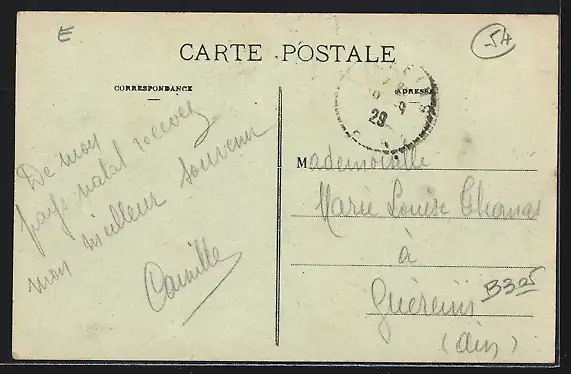 E
54
CARTE POSTALE
CORRESPONDANCE
ADRESSE
29
De mon
pays natal recevez
mon meilleur souvenir
Camille
Mademoiselle
Marie Louise
à
Guéreins
B305
(Ain)